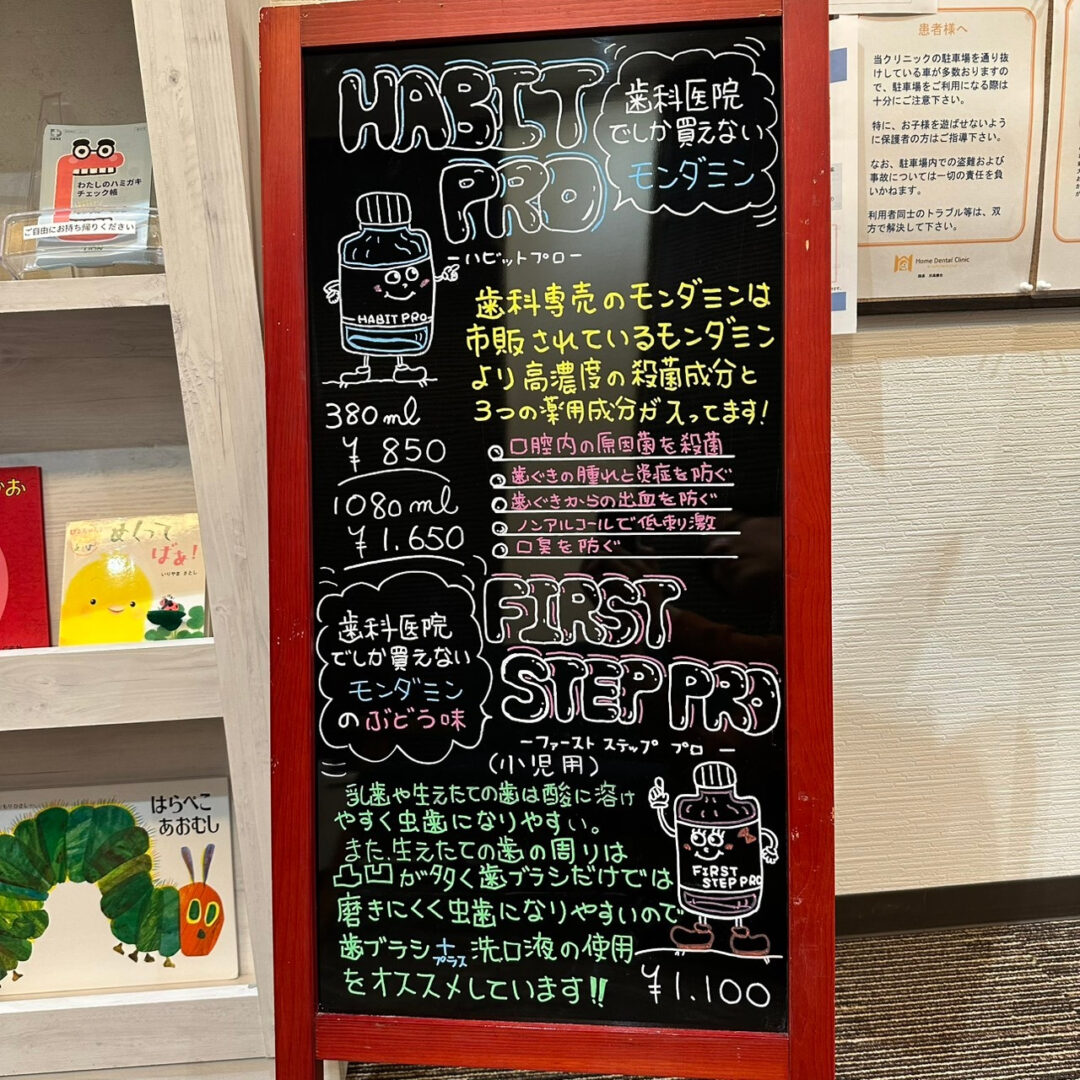 HABIT
PRO
歯科医院
でしか買えない
モンダミン
ーハビットプロー
HABIT PRO
歯科専売のモンダミンは
市販されているモンダミン
より高濃度の殺菌成分と
3つの薬用成分が入ってます!
380ml
¥850
1080ml
¥1.650
口腔内の原因菌を殺菌
歯ぐきの腫れと炎症を防ぐ
歯ぐきからの出血を防ぐ
ノンアルコールで低刺激
口臭を防ぐ
歯科医院
でしか買えない
モンダミン
のぶどう味
FIRST
STEP PRO
ーファースト ステップ プロー
(小児用)
乳歯や生えたての歯は酸に溶け
やすく虫歯になりやすい。
また生えたての歯の周りは
凸凹が多く歯ブラシだけでは
磨きにくく虫歯になりやすいので
歯ブラシ+プラス洗口液の使用
をオススメしています!!
FIRST
STEP PRO
¥1.100
患者様へ
当クリニックの駐車場を通り抜
けしている車が多数おりますの
で、駐車場をご利用になる際は
十分にご注意下さい。
特に、お子様を遊ばせないよう
に保護者の方はご指導下さい。
なお、駐車場内での盗難および
事故については一切の責任を負
いかねます。
利用者同士のトラブル等は、双
方で解決して下さい。
Home Dental Clinic
わたしのハミガキ
チェック帳
ご自由にお持ち帰りください
LION
かお
めくって
ばぁ!
いりやま さとし
はらぺこ
あおむし